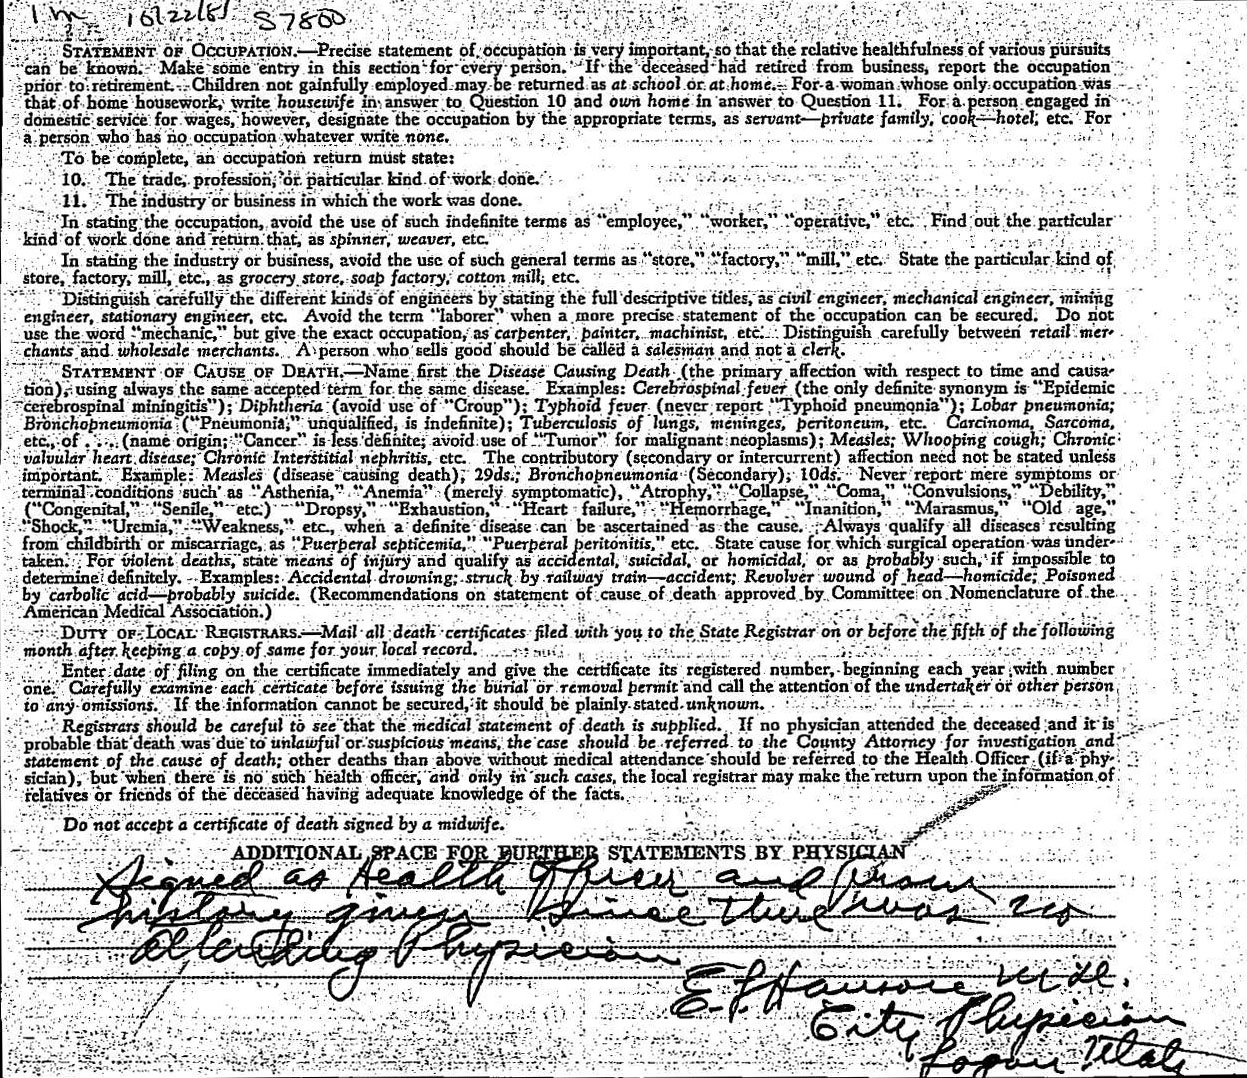 1 m 10/22/51 S7800
STATEMENT OF OCCUPATION.—Precise statement of occupation is very important, so that the relative healthfulness of various pursuits
can be known. Make some entry in this section for every person. If the deceased had retired from business, report the occupation
prior to retirement. Children not gainfully employed may be returned as at school or at home. For a woman whose only occupation was
that of home housework, write housewife in answer to Question 10 and own home in answer to Question 11. For a person engaged in
domestic service for wages, however, designate the occupation by the appropriate terms, as servant—private family, cook—hotel, etc. For
a person who has no occupation whatever write none.
To be complete, an occupation return must state:
10. The trade, profession, or particular kind of work done.
11. The industry or business in which the work was done.
In stating the occupation, avoid the use of such indefinite terms as "employee," "worker," "operative," etc. Find out the particular
kind of work done and return that, as spinner, weaver, etc.
In stating the industry or business, avoid the use of such general terms as "store," "factory," "mill," etc. State the particular kind of
store, factory, mill, etc., as grocery store, soap factory, cotton mill, etc.
Distinguish carefully the different kinds of engineers by stating the full descriptive titles, as civil engineer, mechanical engineer, mining
engineer, stationary engineer, etc. Avoid the term "laborer" when a more precise statement of the occupation can be secured. Do not
use the word "mechanic," but give the exact occupation, as carpenter, painter, machinist, etc. Distinguish carefully between retail mer-
chants and wholesale merchants. A person who sells good should be called a salesman and not a clerk.
STATEMENT OF CAUSE OF DEATH.—Name first the Disease Causing Death (the primary affection with respect to time and causa-
tion), using always the same accepted term for the same disease. Examples: Cerebrospinal fever (the only definite synonym is "Epidemic
cerebrospinal miningitis"); Diphtheria (avoid use of "Croup"); Typhoid fever (never report "Typhoid pneumonia"); Lobar pneumonia;
Bronchopneumonia ("Pneumonia," unqualified, is indefinite); Tuberculosis of lungs, meninges, peritoneum, etc. Carcinoma, Sarcoma,
etc., of .... (name origin; "Cancer" is less definite; avoid use of "Tumor" for malignant neoplasms); Measles; Whooping cough; Chronic
valvular heart disease; Chronic Interstitial nephritis, etc. The contributory (secondary or intercurrent) affection need not be stated unless
important. Example: Measles (disease causing death); 29ds.; Bronchopneumonia (Secondary); 10ds. Never report mere symptoms or
terminal conditions such as "Asthenia," "Anemia" (merely symptomatic), "Atrophy," "Collapse," "Coma," "Convulsions," "Debility,"
("Congenital," "Senile," etc.) "Dropsy," "Exhaustion," "Heart failure," "Hemorrhage," "Inanition," "Marasmus," "Old age,"
"Shock," "Uremia," "Weakness," etc., when a definite disease can be ascertained as the cause. Always qualify all diseases resulting
from childbirth or miscarriage, as "Puerperal septicemia," "Puerperal peritonitis," etc. State cause for which surgical operation was under-
taken. For violent deaths, state means of injury and qualify as accidental, suicidal, or homicidal, or as probably such, if impossible to
determine definitely. Examples: Accidental drowning; struck by railway train—accident; Revolver wound of head—homicide; Poisoned
by carbolic acid—probably suicide. (Recommendations on statement of cause of death approved by Committee on Nomenclature of the
American Medical Association.)
DUTY OF LOCAL REGISTRARS.—Mail all death certificates filed with you to the State Registrar on or before the fifth of the following
month after keeping a copy of same for your local record.
Enter date of filing on the certificate immediately and give the certificate its registered number, beginning each year with number
one. Carefully examine each certicate before issuing the burial or removal permit and call the attention of the undertaker or other person
to any omissions. If the information cannot be secured, it should be plainly stated unknown.
Registrars should be careful to see that the medical statement of death is supplied. If no physician attended the deceased and it is
probable that death was due to unlawful or suspicious means, the case should be referred to the County Attorney for investigation and
statement of the cause of death; other deaths than above without medical attendance should be referred to the Health Officer (if a phy-
sician), but when there is no such health officer, and only in such cases, the local registrar may make the return upon the information of
relatives or friends of the deceased having adequate knowledge of the facts.
Do not accept a certificate of death signed by a midwife.
ADDITIONAL SPACE FOR FURTHER STATEMENTS BY PHYSICIAN
Signed as Health Officer and from
history given Since there was no
attending Physician
E. L. Hansore M.D.
City Physician
Logan Utah